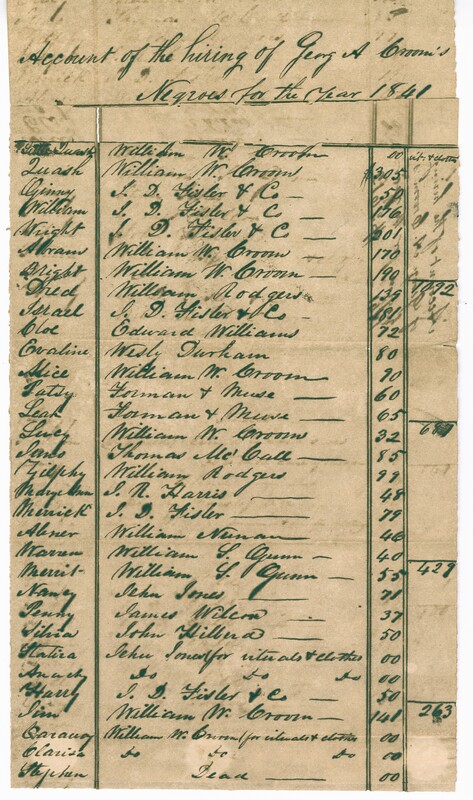 Account of the hiring of Georg A Croom's
Negroes for the Year 1841
Little Quash William W. Croom 00 vit. & clothes
Quash William W. Croom $305
Ginny J. D. Fisler & Co — 50
William J. D. Fisler & Co — 176
Wright J. D. Fisler & Co — 201
Abram William W. Croom — 170
Bright William W. Croom — 190
Dred William Rodgers 139 1092
Israel J. D. Fisler & Co 181
Cloe Edward Williams 72
Evaline Wesly Durham 80
Alice William W. Croom 90
Patsy Forman & Muse — 60
Leah Forman & Muse — 65
Lucy William W. Croom 32
James Thomas McCall — 85
Zilphy William Rodgers 99
Mary Ann J. R. Harris — 48
Merrick J. D. Fisler — 79
Abner William Nunan — 46
Warren William S. Gunn — 40
Merrit William S. Gunn — 55 429
Nancy John Jones — 71
Penny James Wilcox — 37
Silvia John — 50
Statira John Jones (for vituals & clothes 00
do do do 00
Harry J. D. Fisler & Co — 50
Jim William W. Croom — 141 263
Caraway William W. Croom (for vituals & clothes 00
Clarisa do do do 00
Stephen Dead — 00